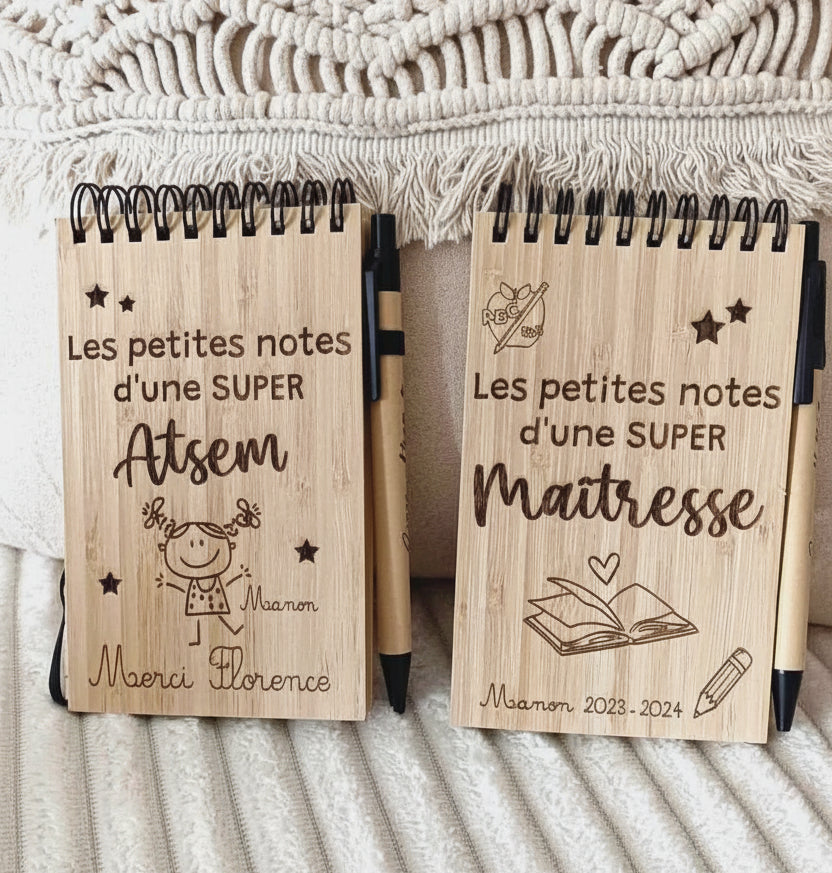 Les petites notes
d'une SUPER
Atsem
Manon
Merci Florence
ABC
Les petites notes
d'une SUPER
Maîtresse
Manon 2023-2024